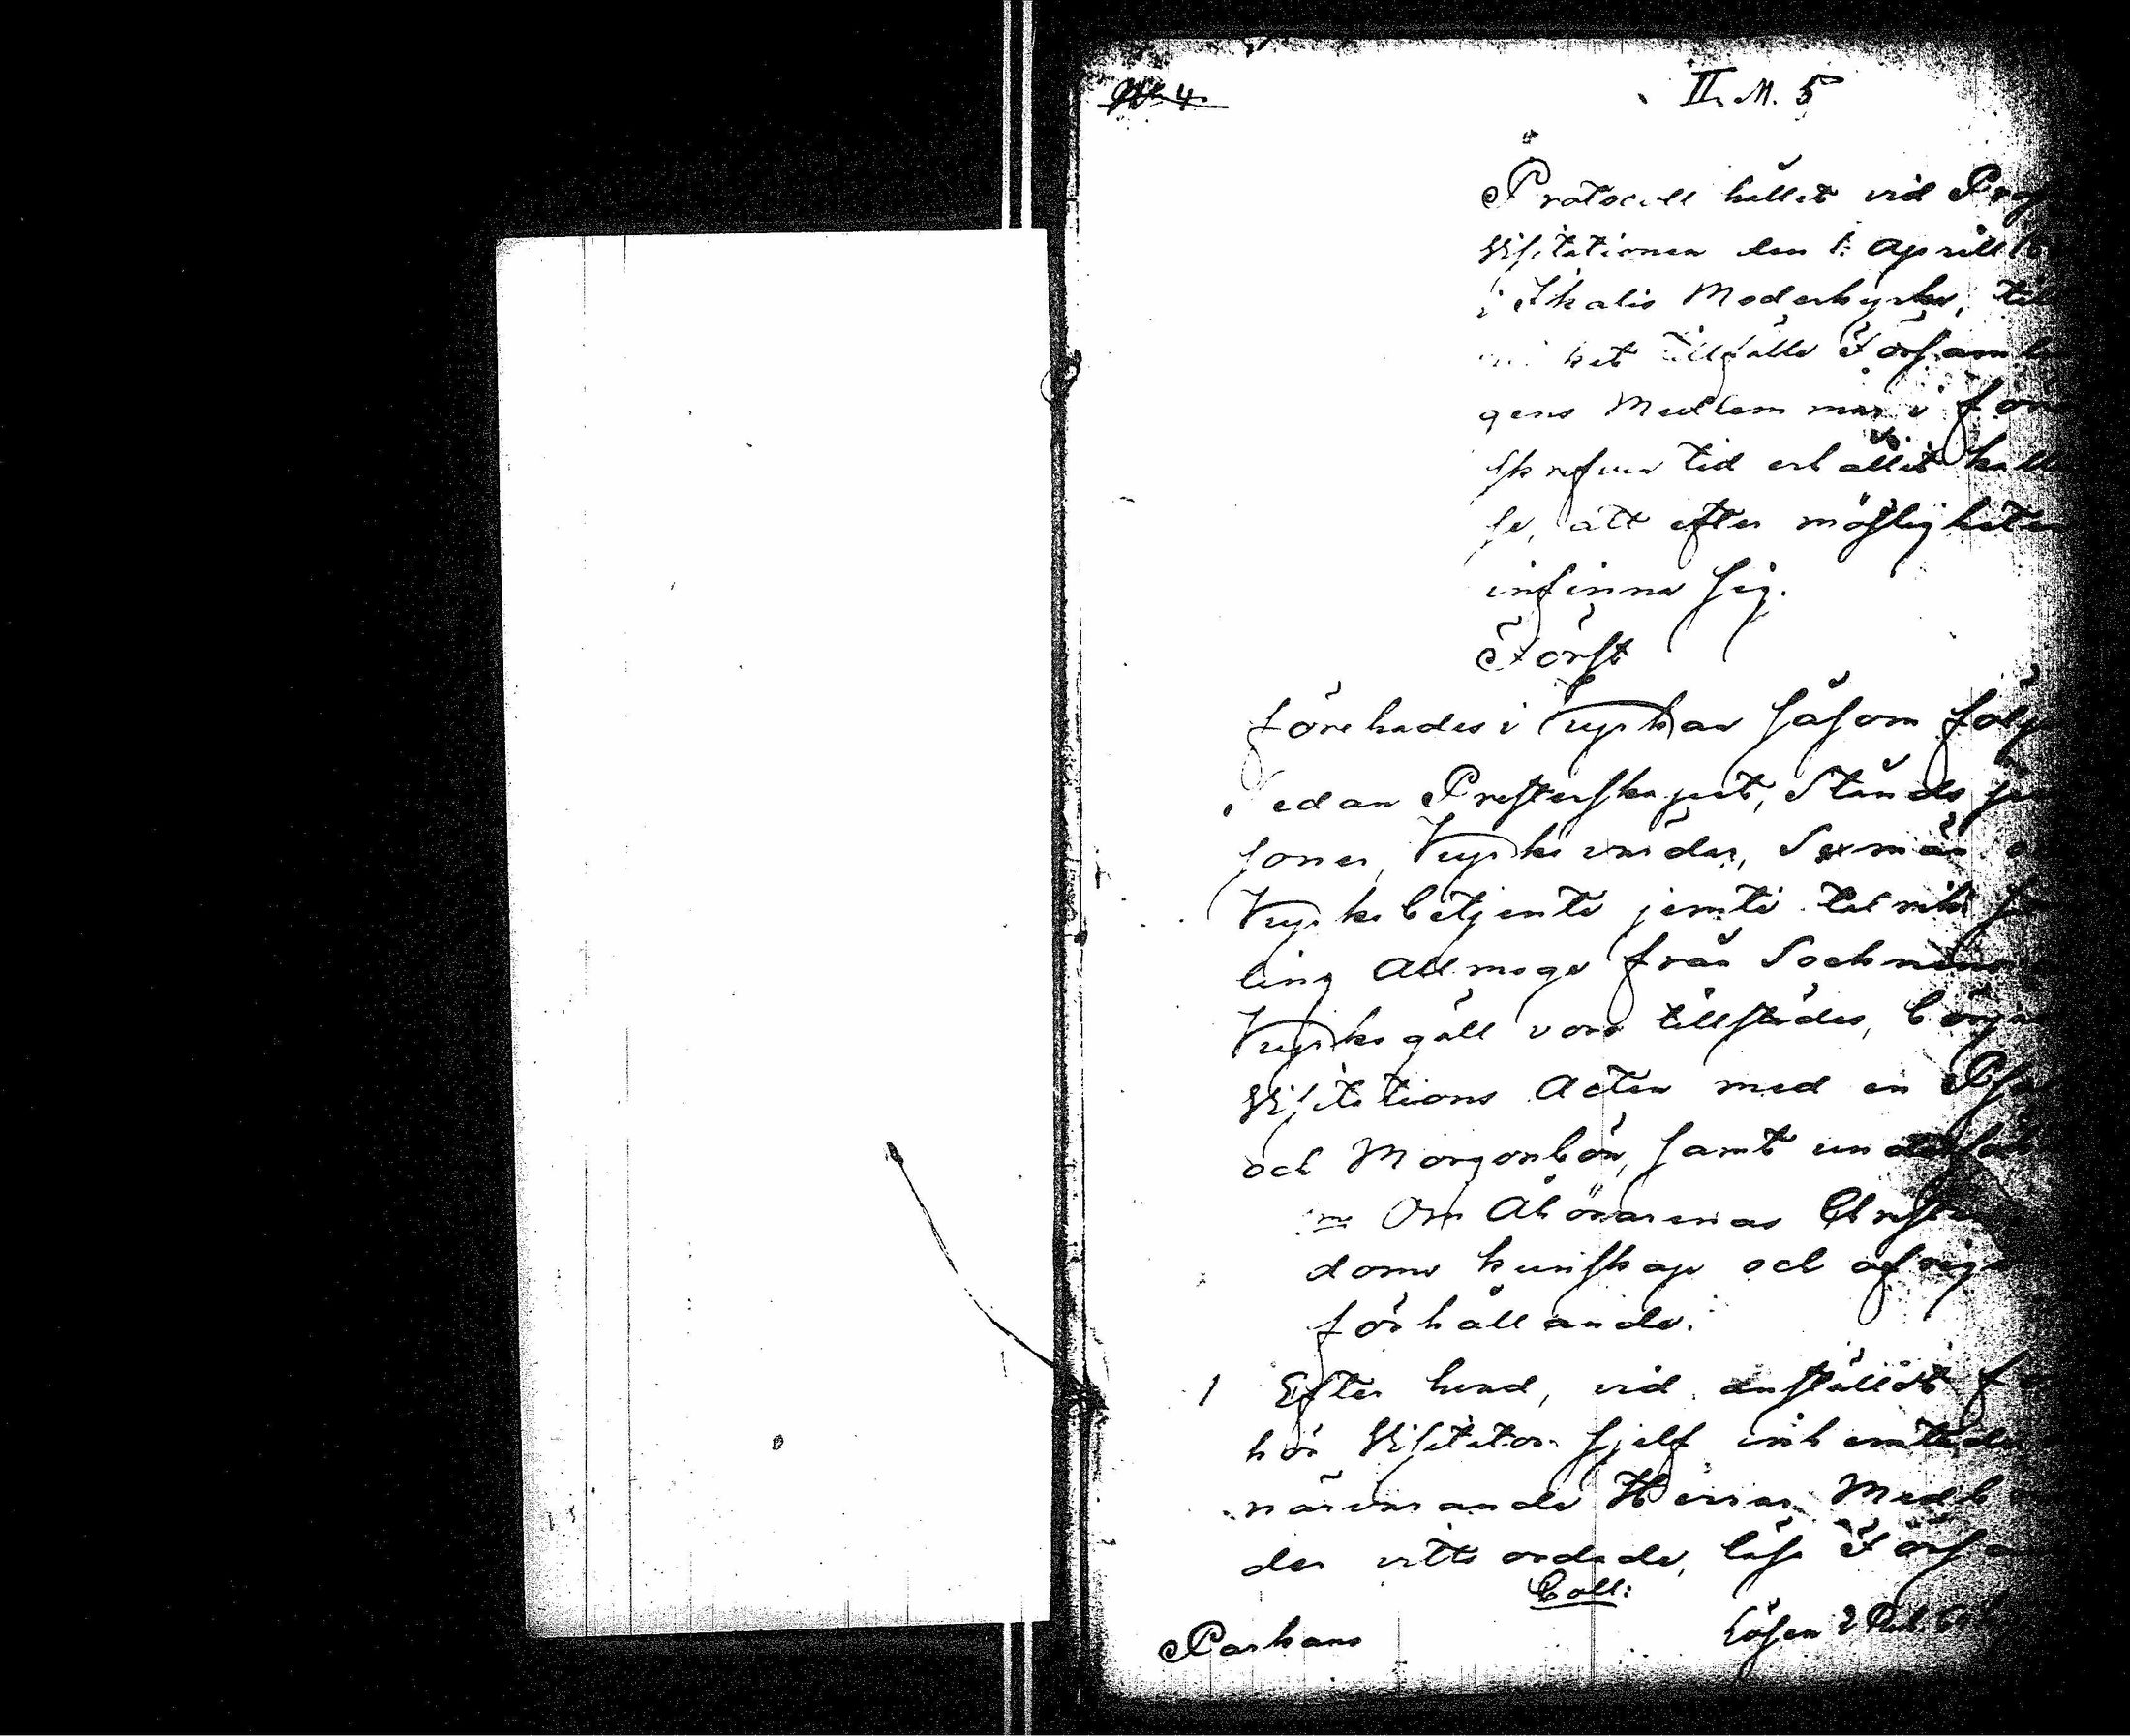 No 4
II. M. 5
Protocoll hållet vid Pro
Visitationen den 1. Aprill 18
i Ikalis Moderkyrka, til
ket tillfälle Församlin
gens Medlemmar i före
skrefven tid erhållit kallel
se, att efter möjligheten
infinna sig.
Först
förehades i Kyrkan såsom följ
Sedan Presterskapet, Stånds per
soner, Kyrkovärdar, Sexmän
Kyrkobetjente jemte talrik sam
ling Allmoge från Socknens
Kyrkogäll voro tillstädes, börja
Visitations Acten med en Psa
och Morgonbön, samt under
Om Åhörarenas Christen
doms kunskap och öfriga
förhållande.
1 Efter hvad, vid anstäldt för
hör Visitator sjelf inhemtade
närvarande Herrar Medb
der vittsordade, läse Försa
Coll:
Parkano Lösen 2 Rub.